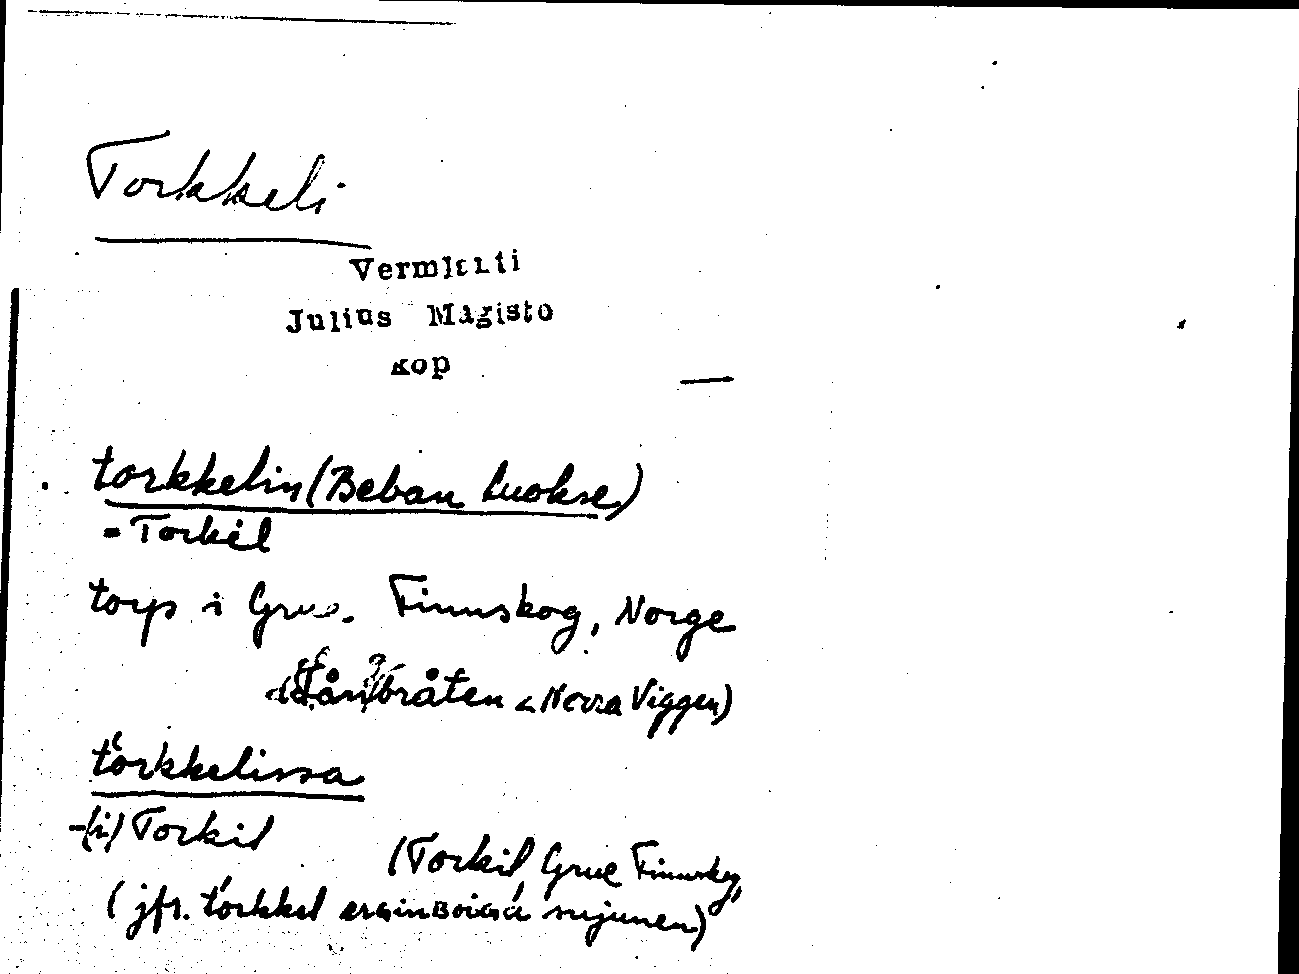 Torkkeli
Vermlanti
Julius Mägisto
kop
torkkelin (Beban luokse)
= Torkel
torp i Grue. Finnskog, Norge
bråten < Norra Viggen)
torkkelissa
-(i) Torkil
(Torkil, Grue Finnskog,
(jfr. torkkel sujunen)